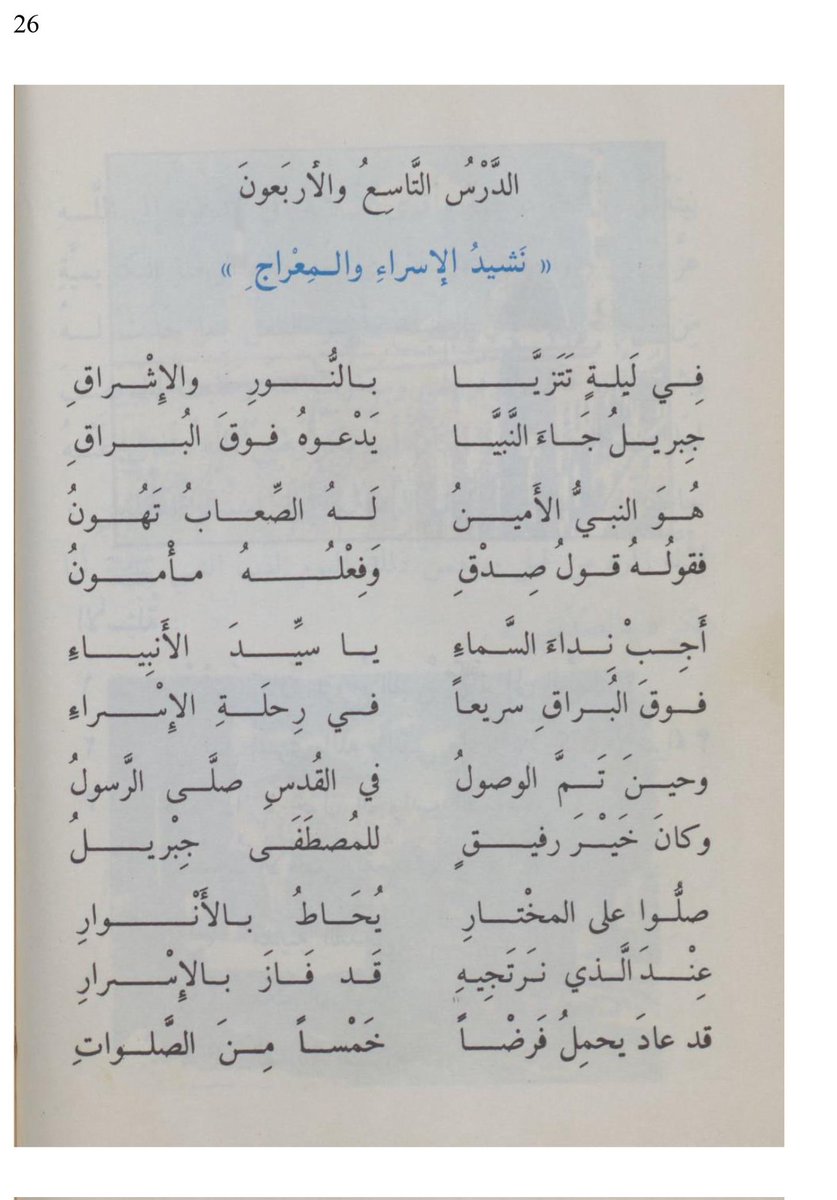 26
الدَّرْسُ التَّاسِعُ والأربَعونَ
« نَشيدُ الإسراءِ والـمِعْراجِ »
فِي لَيلةٍ تَتَزيَّا بالنُّورِ والإِشْراقِ
جِبريلُ جَاءَ النَّبيَّا يَدْعوهُ فوقَ البُراقِ
هُوَ النبيُّ الأَمينُ لَهُ الصِّعابُ تَهُونُ
فقولُهُ قولُ صِدْقٍ وَفِعْلُهُ مأْمونُ
أَجِبْ نِداءَ السَّماءِ يا سيِّدَ الأَنبِياءِ
فوقَ البُراقِ سريعاً في رِحلَةِ الإِسْراءِ
وحينَ تَمَّ الوصولُ في القُدسِ صلَّى الرَّسولُ
وكانَ خَيْرَ رفيقٍ للمُصطَفَى جِبْريلُ
صلُّوا على المخْتارِ يُحَاطُ بالأَنْوارِ
عِنْدَ الَّذي نَرتَجيهِ قَد فَازَ بالإِسْرارِ
قد عادَ يحمِلُ فَرضْاً خَمْساً مِنَ الصَّلواتِ